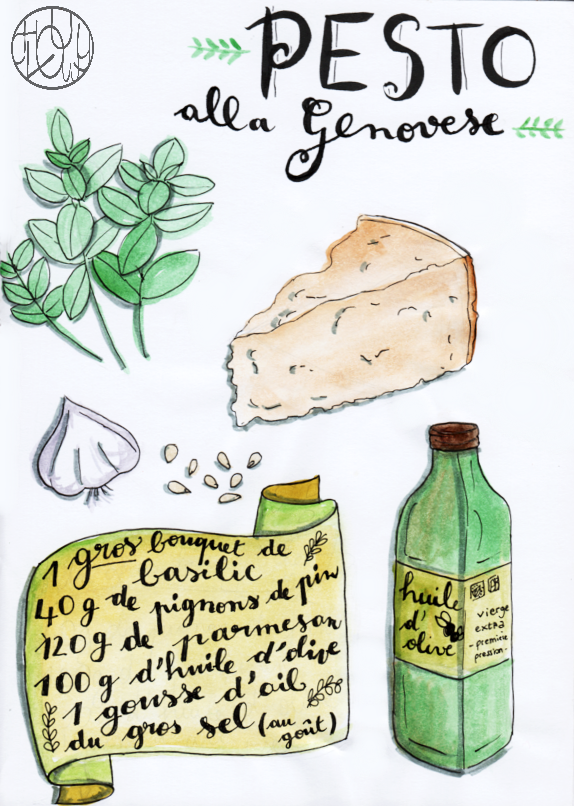 PESTO
alla Genovese
1 gros bouquet de
basilic
40 g de pignons de pin
120 g de parmesan
100 g d'huile d'olive
1 gousse d'ail
du gros sel (au
goût)
huile
d'
olive
vierge
extra
- première
pression -